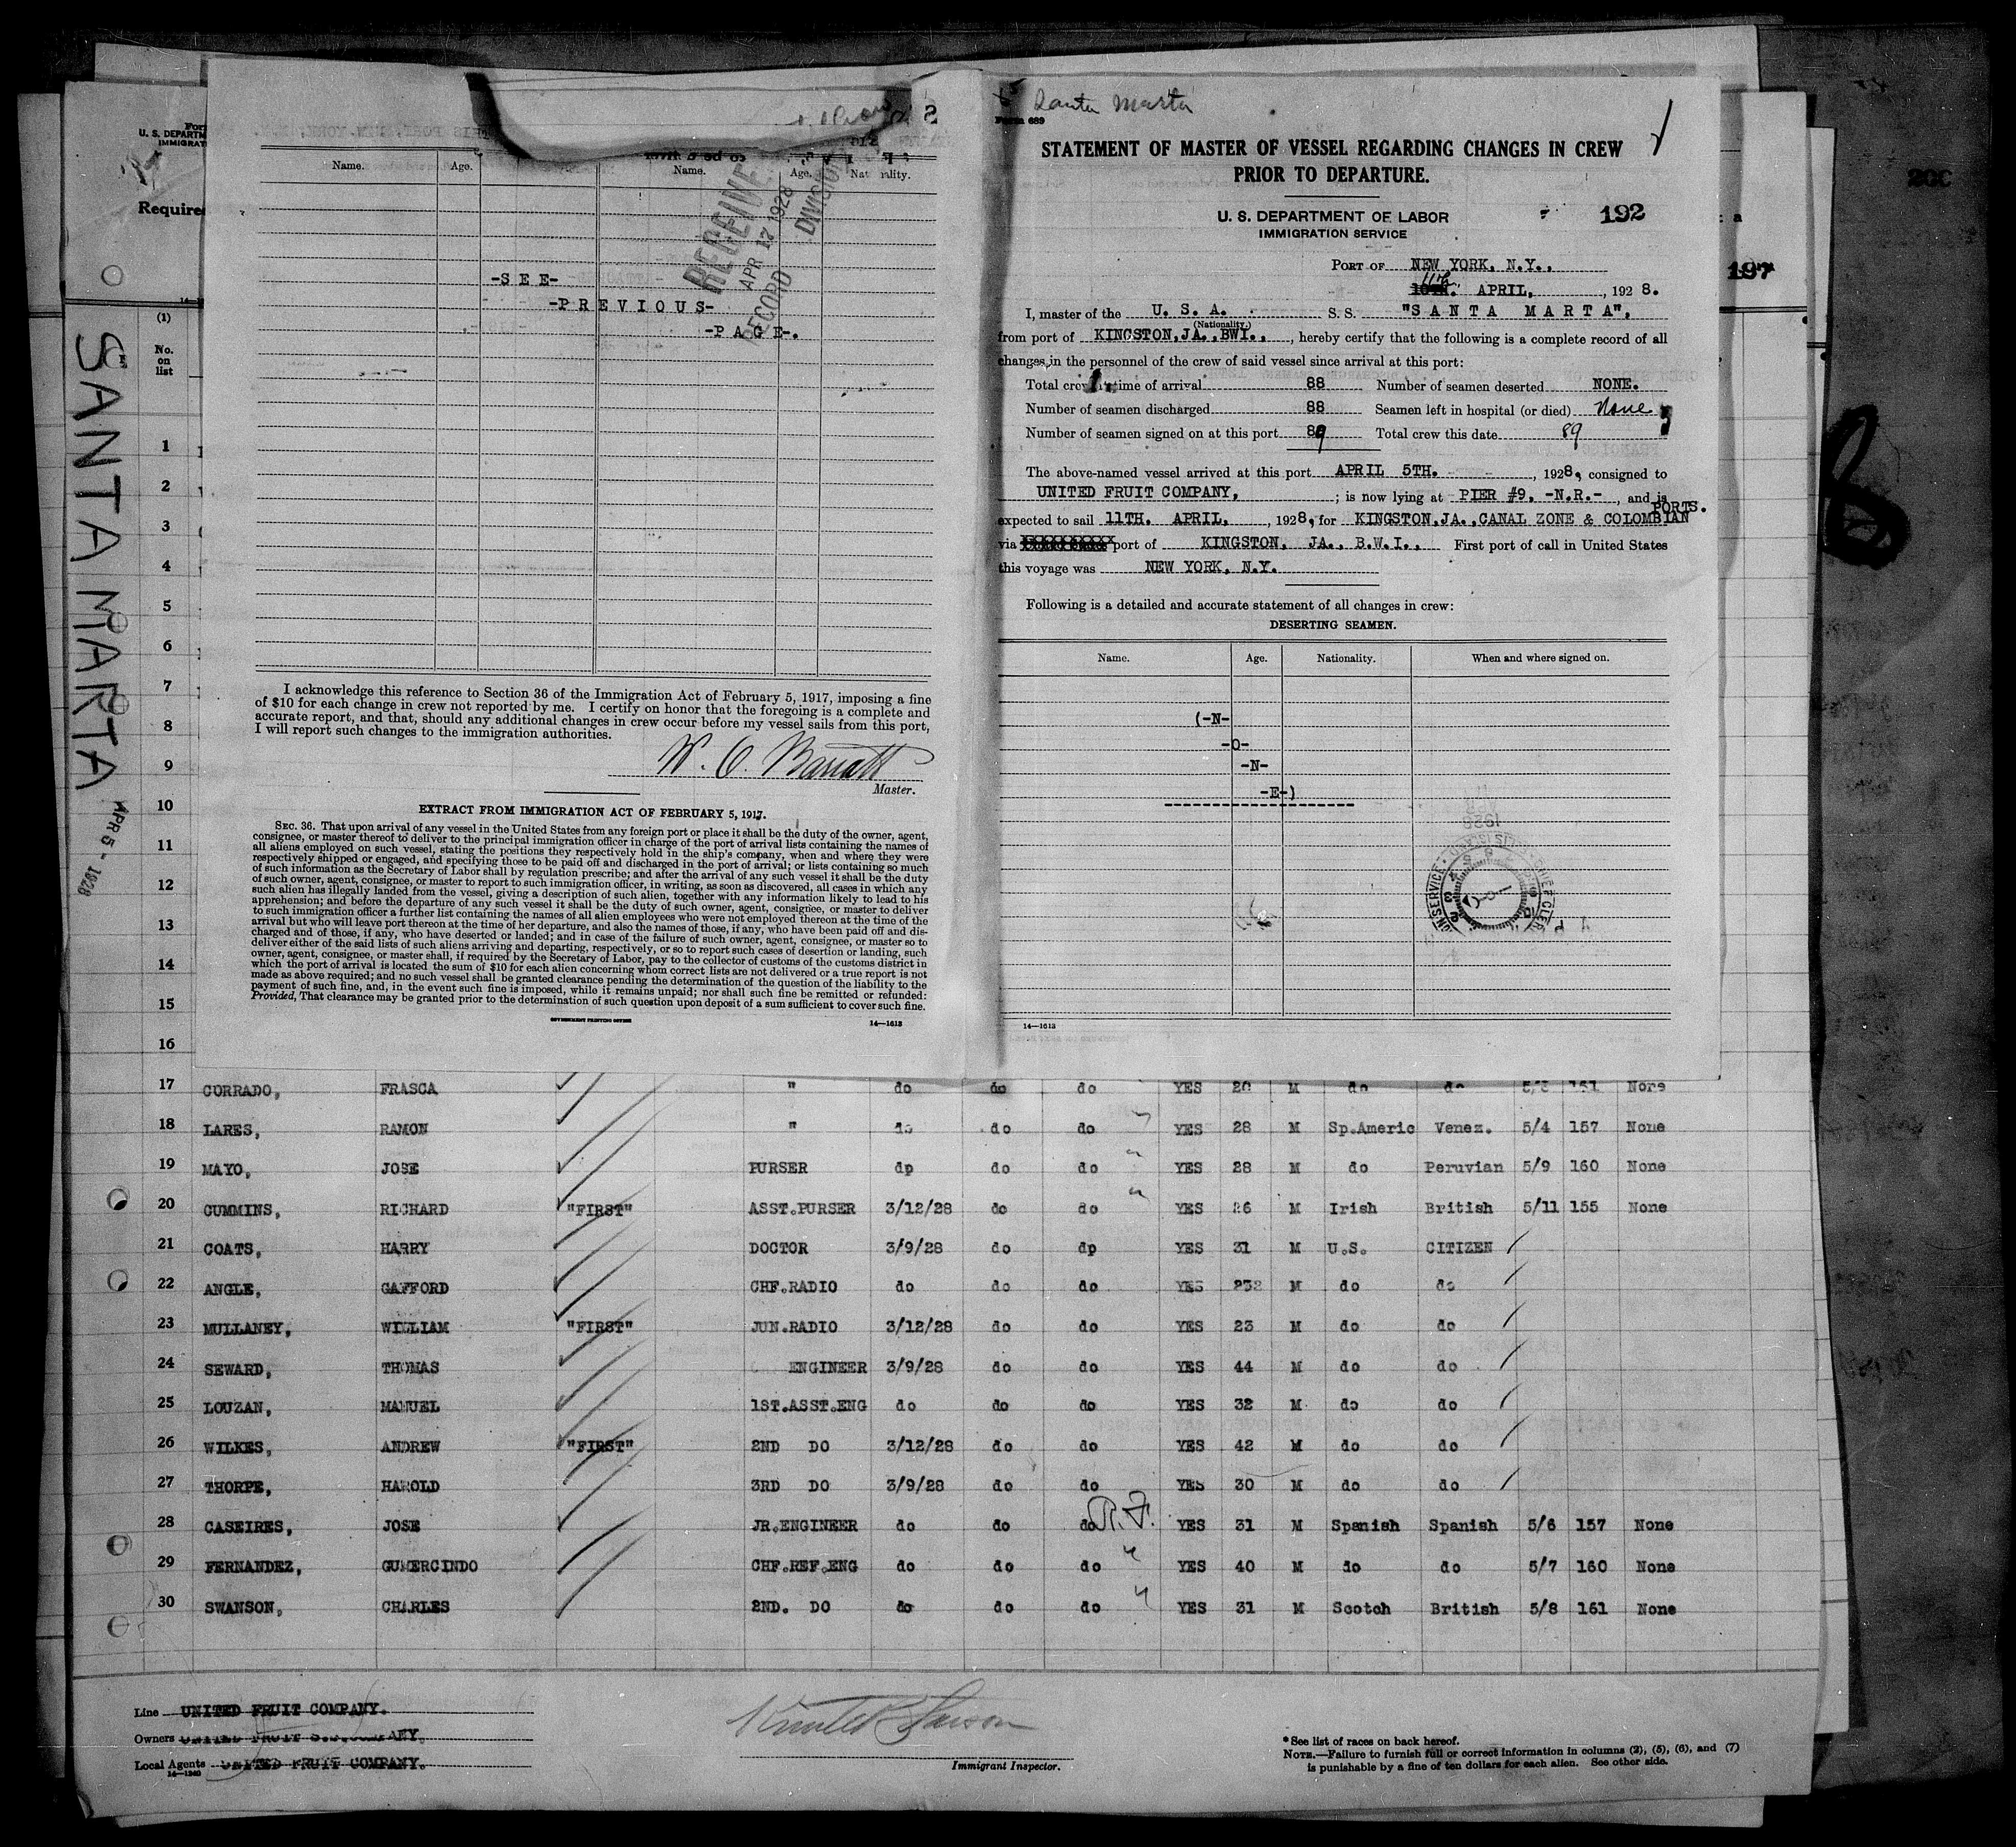 Santa Marta
Form 689
STATEMENT OF MASTER OF VESSEL REGARDING CHANGES IN CREW
PRIOR TO DEPARTURE.
U. S. DEPARTMENT OF LABOR
IMMIGRATION SERVICE
192
PORT OF NEW YORK, N.Y.,
11th
10TH. APRIL, , 1928.
I, master of the U. S. A. S. S. "SANTA MARTA",
(Nationality.)
from port of KINGSTON,JA.,BWI., , hereby certify that the following is a complete record of all
changes in the personnel of the crew of said vessel since arrival at this port:
Total crew time of arrival 88 Number of seamen deserted NONE.
Number of seamen discharged 88 Seamen left in hospital (or died) None
Number of seamen signed on at this port 89 Total crew this date 89
The above-named vessel arrived at this port APRIL 5TH. , 1928, consigned to
UNITED FRUIT COMPANY, ; is now lying at PIER #9, -N.R.- , and is
PORTS.
expected to sail 11TH. APRIL, , 1928, for KINGSTON,JA.,CANAL ZONE & COLOMBIAN
via port of KINGSTON, JA., B.W.I., First port of call in United States
this voyage was NEW YORK, N.Y.
Following is a detailed and accurate statement of all changes in crew:
DESERTING SEAMEN.
Name. Age. Nationality. When and where signed on.
(-N-
-O-
-N-
-E-)
14—1613
Name. Age. Name. Age. Nationality.
RECEIVED
APR 12 1928
RECORD DIVISION
-SEE-
-PREVIOUS-
-PAGE-.
I acknowledge this reference to Section 36 of the Immigration Act of February 5, 1917, imposing a fine
of $10 for each change in crew not reported by me. I certify on honor that the foregoing is a complete and
accurate report, and that, should any additional changes in crew occur before my vessel sails from this port,
I will report such changes to the immigration authorities.
W. O. Barratt
Master.
EXTRACT FROM IMMIGRATION ACT OF FEBRUARY 5, 1917.
SEC. 36. That upon arrival of any vessel in the United States from any foreign port or place it shall be the duty of the owner, agent,
consignee, or master thereof to deliver to the principal immigration officer in charge of the port of arrival lists containing the names of
all aliens employed on such vessel, stating the positions they respectively hold in the ship's company, when and where they were
respectively shipped or engaged, and specifying those to be paid off and discharged in the port of arrival; or lists containing so much
of such information as the Secretary of Labor shall by regulation prescribe; and after the arrival of any such vessel it shall be the duty
of such owner, agent, consignee, or master to report to such immigration officer, in writing, as soon as discovered, all cases in which any
such alien has illegally landed from the vessel, giving a description of such alien, together with any information likely to lead to his
apprehension; and before the departure of any such vessel it shall be the duty of such owner, agent, consignee, or master to deliver
to such immigration officer a further list containing the names of all alien employees who were not employed thereon at the time of the
arrival but who will leave port thereon at the time of her departure, and also the names of those, if any, who have been paid off and dis-
charged and of those, if any, who have deserted or landed; and in case of the failure of such owner, agent, consignee, or master so to
deliver either of the said lists of such aliens arriving and departing, respectively, or so to report such cases of desertion or landing, such
owner, agent, consignee, or master shall, if required by the Secretary of Labor, pay to the collector of customs of the customs district in
which the port of arrival is located the sum of $10 for each alien concerning whom correct lists are not delivered or a true report is not
made as above required; and no such vessel shall be granted clearance pending the determination of the question of the liability to the
payment of such fine, and, in the event such fine is imposed, while it remains unpaid; nor shall such fine be remitted or refunded:
Provided, That clearance may be granted prior to the determination of such question upon deposit of a sum sufficient to cover such fine.
GOVERNMENT PRINTING OFFICE 14—1613
Form
U. S. DEPARTM
IMMIGRATI
Require
197
(1)
No.
on
list
SS SANTA MARTA
APR 5 - 1928
1
2
3
4
5
6
7
8
9
10
11
12
13
14
15
16
17 CORRADO, FRASCA " do do do YES 20 M do do 5/5 151 None
18 LARES, RAMON " do do do YES 28 M Sp.Americ Venez. 5/4 157 None
19 MAYO, JOSE PURSER dp do do YES 28 M do Peruvian 5/9 160 None
20 CUMMINS, RICHARD "FIRST" ASST.PURSER 3/12/28 do do YES 26 M Irish British 5/11 155 None
21 COATS, HARRY DOCTOR 3/9/28 do dp YES 31 M U.S. CITIZEN
22 ANGLE, GAFFORD CHF.RADIO do do do YES 232 M do do
23 MULLANEY, WILLIAM "FIRST" JUN.RADIO 3/12/28 do do YES 23 M do do
24 SEWARD, THOMAS ENGINEER 3/9/28 do do YES 44 M do do
25 LOUZAN, MANUEL 1ST.ASST.ENG do do do YES 32 M do do
26 WILKES, ANDREW "FIRST" 2ND DO 3/12/28 do do YES 42 M do do
27 THORPE, HAROLD 3RD DO 3/9/28 do do YES 30 M do do
28 CASEIRES, JOSE JR.ENGINEER do do do YES 31 M Spanish Spanish 5/6 157 None
29 FERNANDEZ, GUMERCINDO CHF.REF.ENG do do do YES 40 M do do 5/7 160 None
30 SWANSON, CHARLES 2ND. DO do do do YES 31 M Scotch British 5/8 161 None
Line UNITED FRUIT COMPANY.
Owners UNITED FRUIT S.S.COMPANY.
Local Agents UNITED FRUIT COMPANY.
14—1240
Immigrant Inspector.
*See list of races on back hereof.
NOTE.—Failure to furnish full or correct information in columns (2), (5), (6), and (7)
is punishable by a fine of ten dollars for each alien. See other side.